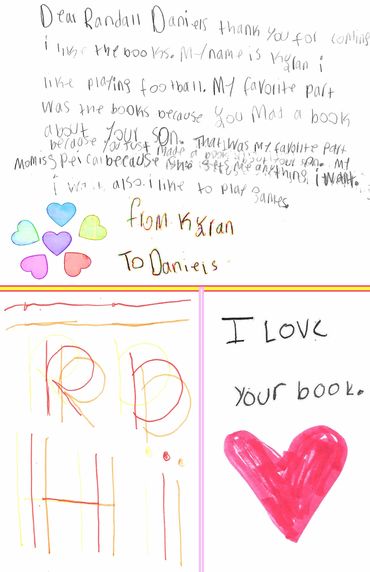 Dear Randall Daniels thank you for coming
i like the books. My name is Kyran i
like playing football. My favorite part
was the books because you Mad a book
about your son. That was my favorite part
because you just made a book about your son. My
mom is because she gets me anything i want.
i also i like to play games
from Kyran
To Daniels
RD
Hi
I LOVE
your book.